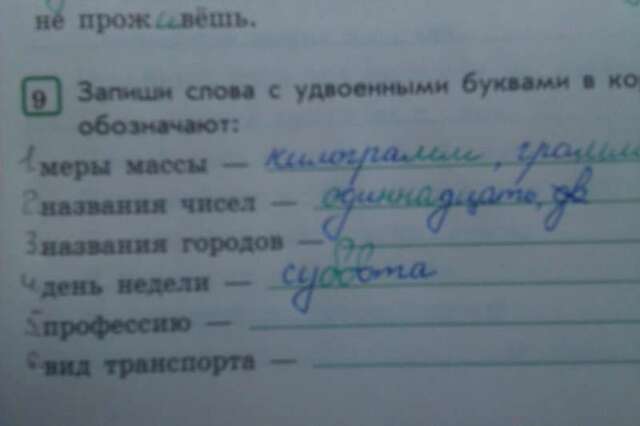 не проживёшь.
9 Запиши слова с удвоенными буквами в ко
обозначают:
1 меры массы — килограмм, грамм
2 названия чисел — одиннадцать, дв
3 названия городов —
4 день недели — суббота
5 профессию —
6 вид транспорта —